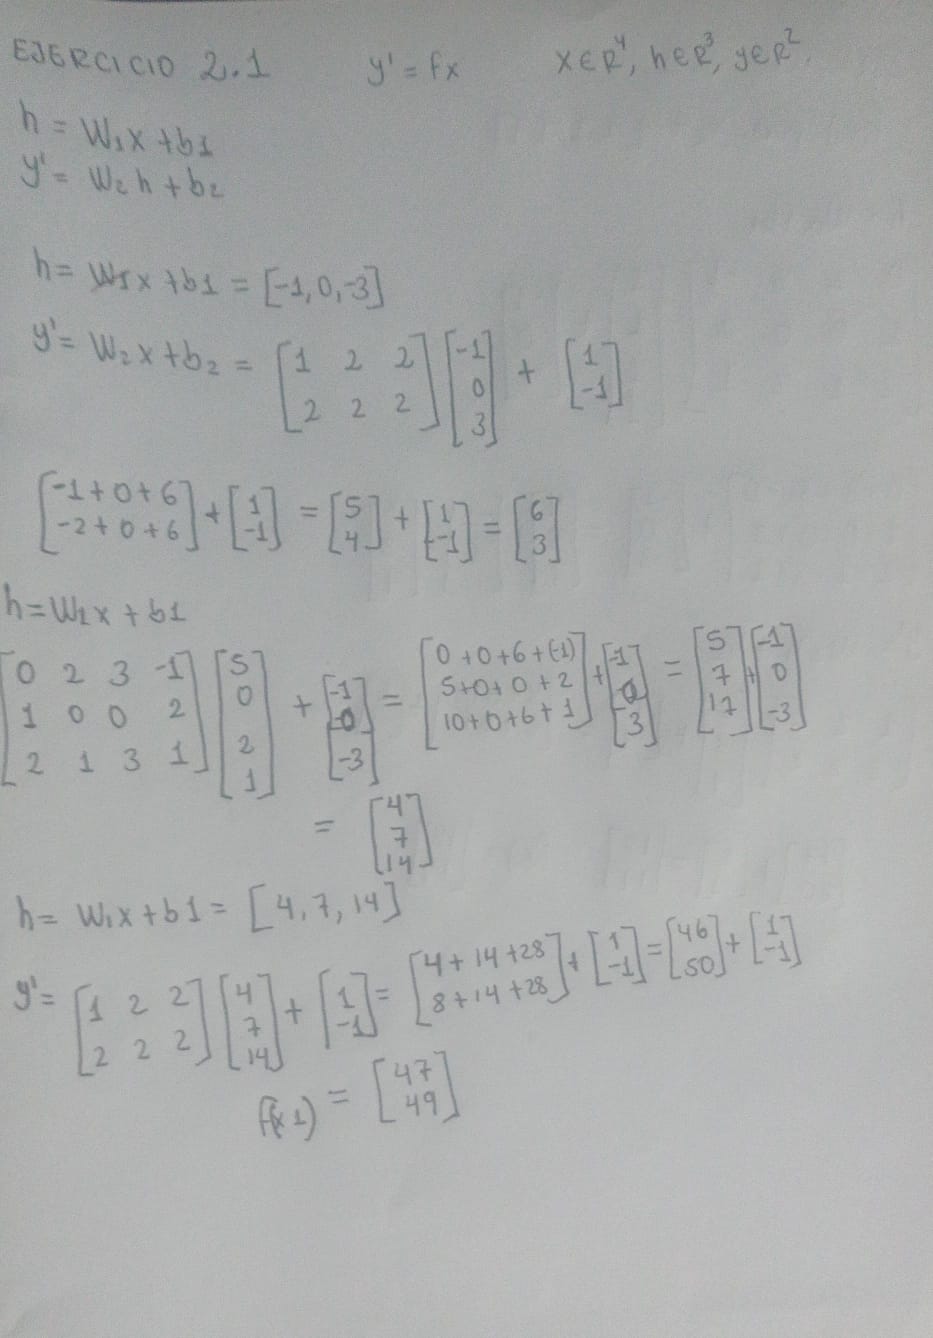 EJERCICIO 2.1 y' = fx x∈R⁴, h∈R³, y∈R².
h = W₁x + b1
y' = W₂h + b₂
h = W₁x + b1 = [-1, 0, -3]
y' = W₂x + b₂ = [1 2 2; 2 2 2] [-1; 0; 3] + [1; -1]
[-1+0+6; -2+0+6] + [1; -1] = [5; 4] + [1; -1] = [6; 3]
h = W₁x + b1
[0 2 3 -1; 1 0 0 2; 2 1 3 1] [5; 0; 2; 1] + [-1; 0; -3] = [0+0+6+(-1); 5+0+0+2; 10+0+6+1] + [-1; 0; 3] = [5; 7; 17] + [-1; 0; -3]
= [4; 7; 14]
h = W₁x + b1 = [4, 7, 14]
y' = [1 2 2; 2 2 2] [4; 7; 14] + [1; -1] = [4+14+28; 8+14+28] + [1; -1] = [46; 50] + [1; -1]
f(x1) = [47; 49]